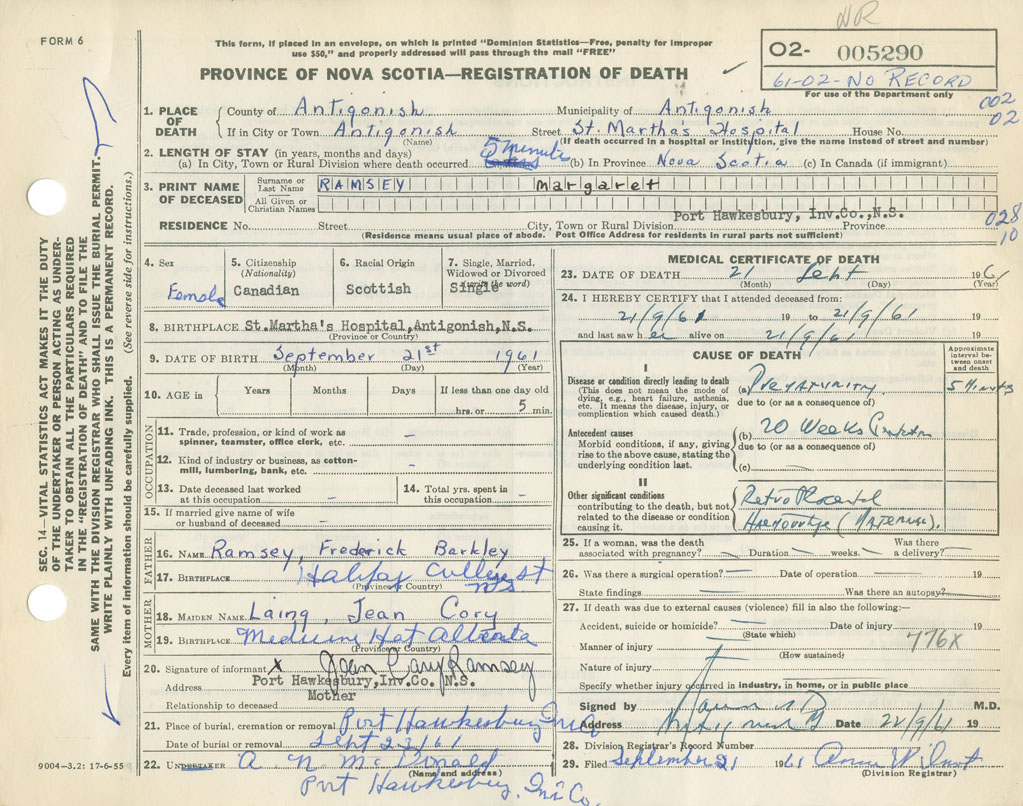 NR
FORM 6
This form, if placed in an envelope, on which is printed "Dominion Statistics—Free, penalty for improper
use $50," and properly addressed will pass through the mail "FREE"
PROVINCE OF NOVA SCOTIA—REGISTRATION OF DEATH
O2- 005290
61-02-No RECORD
For use of the Department only
002
02
1. PLACE OF DEATH
County of Antigonish Municipality of Antigonish
If in City or Town Antigonish Street St. Martha's Hospital House No.
(Name) (If death occurred in a hospital or institution, give the name instead of street and number)
2. LENGTH OF STAY (in years, months and days)
(a) In City, Town or Rural Division where death occurred 5 minutes (b) In Province Nova Scotia (c) In Canada (if immigrant)
3. PRINT NAME OF DECEASED
Surname or Last Name RAMSEY Margaret
All Given or Christian Names
Port Hawkesbury, Inv.Co.,N.S.
028
10
RESIDENCE No. Street City, Town or Rural Division Province
(Residence means usual place of abode. Post Office Address for residents in rural parts not sufficient)
4. Sex
Female
5. Citizenship
(Nationality)
Canadian
6. Racial Origin
Scottish
7. Single, Married,
Widowed or Divorced
(write the word)
Single
8. BIRTHPLACE St.Martha's Hospital,Antigonish,N.S.
(Province or Country)
9. DATE OF BIRTH September 21st 1961
(Month) (Day) (Year)
10. AGE in
Years Months Days If less than one day old
hrs. or 5 min.
OCCUPATION
11. Trade, profession, or kind of work as
spinner, teamster, office clerk, etc. -
12. Kind of industry or business, as cotton-
mill, lumbering, bank, etc. -
13. Date deceased last worked
at this occupation -
14. Total yrs. spent in
this occupation -
15. If married give name of wife
or husband of deceased -
FATHER
16. NAME Ramsey, Frederick Barkley
17. BIRTHPLACE Halifax College st
N.S.
(Province or Country)
MOTHER
18. MAIDEN NAME Laing, Jean Cory
19. BIRTHPLACE Medicine Hat Alberta
(Province or Country)
20. Signature of informant x Jean Cary Ramsey
Address Port Hawkesbury,Inv.Co. N.S.
Relationship to deceased Mother
21. Place of burial, cremation or removal Port Hawkesbury Inv Co
Date of burial or removal Sept 23/61
22. UNDERTAKER A. N. McDonald
(Name and address)
Port Hawkesbury, Inv Co.
9004-3.2: 17-6-55
MEDICAL CERTIFICATE OF DEATH
23. DATE OF DEATH 21 Sept 1961
(Month) (Day) (Year)
24. I HEREBY CERTIFY that I attended deceased from:
21/9/61 19 to 21/9/61 19
and last saw her alive on 21/9/61 19
CAUSE OF DEATH
Approximate
interval be-
tween onset
and death
I
Disease or condition directly leading to death
(This does not mean the mode of
dying, e.g., heart failure, asthenia,
etc. It means the disease, injury, or
complication which caused death.)
(a) Prematurity 5 Minutes
due to (or as a consequence of)
Antecedent causes
Morbid conditions, if any, giving
rise to the above cause, stating the
underlying condition last.
(b) 20 Weeks
due to (or as a consequence of)
(c)
II
Other significant conditions
contributing to the death, but not
related to the disease or condition
causing it.
Retro Placental
Haemorrhage (Maternal).
25. If a woman, was the death
associated with pregnancy? Duration weeks. Was there
a delivery?
26. Was there a surgical operation? Date of operation 19
State findings Was there an autopsy?
27. If death was due to external causes (violence) fill in also the following:—
Accident, suicide or homicide? Date of injury 19
(State which)
Manner of injury 776X
(How sustained)
Nature of injury
Specify whether injury occurred in industry, in home, or in public place
Signed by M.D.
Address Date 22/9/61 19
28. Division Registrar's Record Number
29. Filed September 21 1961
(Division Registrar)
SEC. 14—VITAL STATISTICS ACT MAKES IT THE DUTY
OF THE UNDERTAKER OR PERSON ACTING AS UNDER-
TAKER TO OBTAIN ALL THE PARTICULARS REQUIRED
IN THE "REGISTRATION OF DEATH" AND TO FILE THE
SAME WITH THE DIVISION REGISTRAR WHO SHALL ISSUE THE BURIAL PERMIT.
WRITE PLAINLY WITH UNFADING INK. THIS IS A PERMANENT RECORD.
Every item of information should be carefully supplied. (See reverse side for instructions.)